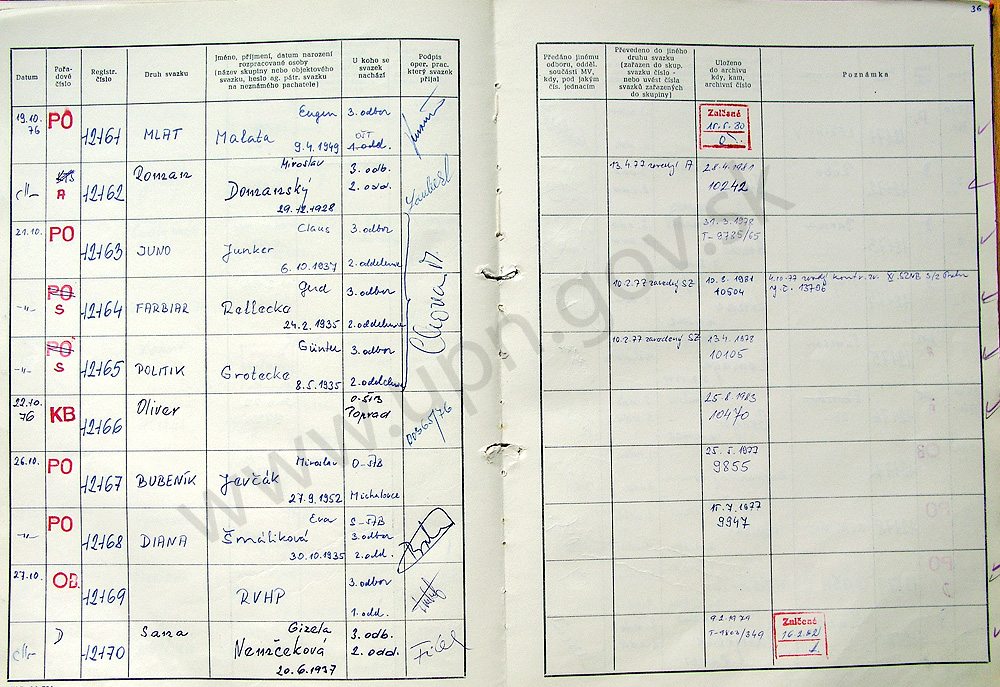 36
Datum
Pořadové číslo
Registr. číslo
Druh svazku
Jméno, příjmení, datum narození
rozpracované osoby
(název skupiny nebo objektového
svazku, heslo ag. pátr. svazku
na neznámého pachatele)
U koho se
svazek
nachází
Podpis
oper. prac.
který svazek
přijal
Předáno jinému
odboru, odděl.
součásti MV,
kdy, pod jakým
čís. jednacím
Převedeno do jiného
druhu svazku
(zařazen do skup.
svazku číslo -
nebo uvést čísla
svazků zařazených
do skupiny)
Uloženo
do archivu
kdy, kam,
archivní číslo
Poznámka
19.10. 76 PO 12161 MLAT Eugen Malata 9.4.1949 3. odbor 1. odd.
Zničené 15.5.80
-"- A 12162 Roman Miroslav Domanský 29.12.1928 3. odb. 2. odd.
13.4.77 A 28.4.1981 10242
21.10. PO 12163 JUNO Claus Junker 6.10.1937 3. odbor 2. oddelenie
31.3.1978 T-9785/65
-"- PO S 12164 FARBIAR Gerd Rellecke 24.2.1935 3. odbor 2. oddelenie
10.2.77 zavedený SZ 10.3.1981 10504 4.10.77 13706
-"- PO S 12165 POLITIK Günter Grotecke 8.5.1935 3. odbor 2. oddelenie
10.2.77 zavedený SZ 13.4.1978 10105
22.10. 76 KB 12166 Oliver Poprad 00365/76
25.8.1983 10470
26.10. PO 12167 BUBENÍK Miroslav Jevčák 27.9.1952 O-ŠtB Michalovce
25.5.1977 9855
-"- PO 12168 DIANA Eva Šmáliková 30.10.1935 S-ŠtB 3. odbor 2. odd.
15.7.1977 9947
27.10. OB 12169 RVHP 3. odbor 1. odd.
-"- D 12170 Sana Gizela Nemčeková 20.6.1937 3. odb. 2. odd.
9.2.1979 Zničené 16.2.82
www.upn.gov.sk